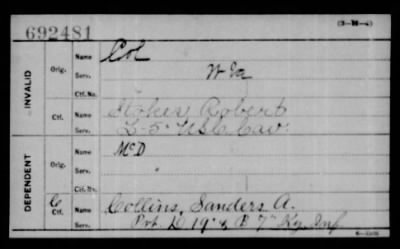 (3-W-4)
692481
INVALID
Orig.
Name
Col
Serv.
W Va
Ctf. No.
Ctf.
Name
Stokes Robert
Serv.
L-5" U.S.C. Cav.
DEPENDENT
Orig.
Name
McD
Serv.
Ctf. No.
C
Ctf.
Name
Collins, Sanders A.
Serv.
Pvt. D 19" & B 7" Ky. Inf